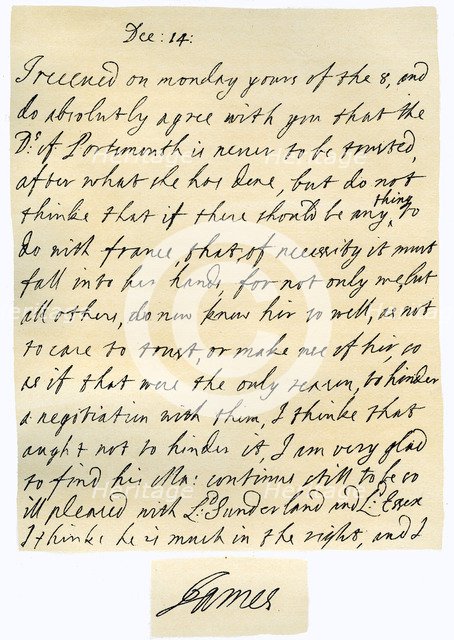 Dec: 14:
I receued on monday yours of the 8, and
do absolutly agree with you that the
Ds. of Portsmouth is neuer to be trusted,
after what she has done, but do not
thinke that if there should be any thing to
do with france, that of necessity it must
fall into her hands for not only we, but
all others, do now know hir so well, as not
to care to trust, or make use of hir so
as if that were the only reason, to hinder
a negotiation with them, I thinke that
aught not to hinder it, I am very glad
to find his Ma: continus still to be so
ill pleased with Ld. Sunderland and Ld. Essex
I thinke he is much in the right, and I
James